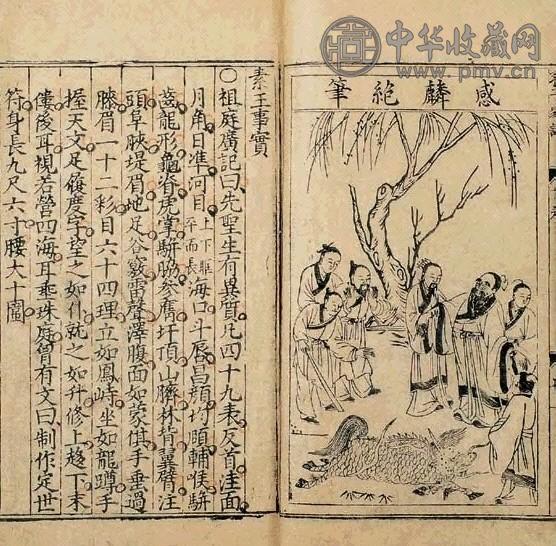 中华收藏网
www.pmv.cn
感麟絕筆
素王事實
○祖庭廣記曰先聖生有異質凡四十九表反首洼面
月角日準河目上下匡平而長海口斗唇昌顏均頤輔喉駢
齒龍形龜脊虎掌駢脇參膺圩頂山臍林背翼臂注
頭阜脥堤眉地足谷竅雷聲澤腹面如蒙倛手垂過
膝眉一十二彩目六十四理立如鳳峙坐如龍蹲手
握天文足履度字望之如什就之如升修上趍下末
僂後耳視若營四海耳垂珠庭胷有文曰制作定世
符身長九尺六寸腰大十圍